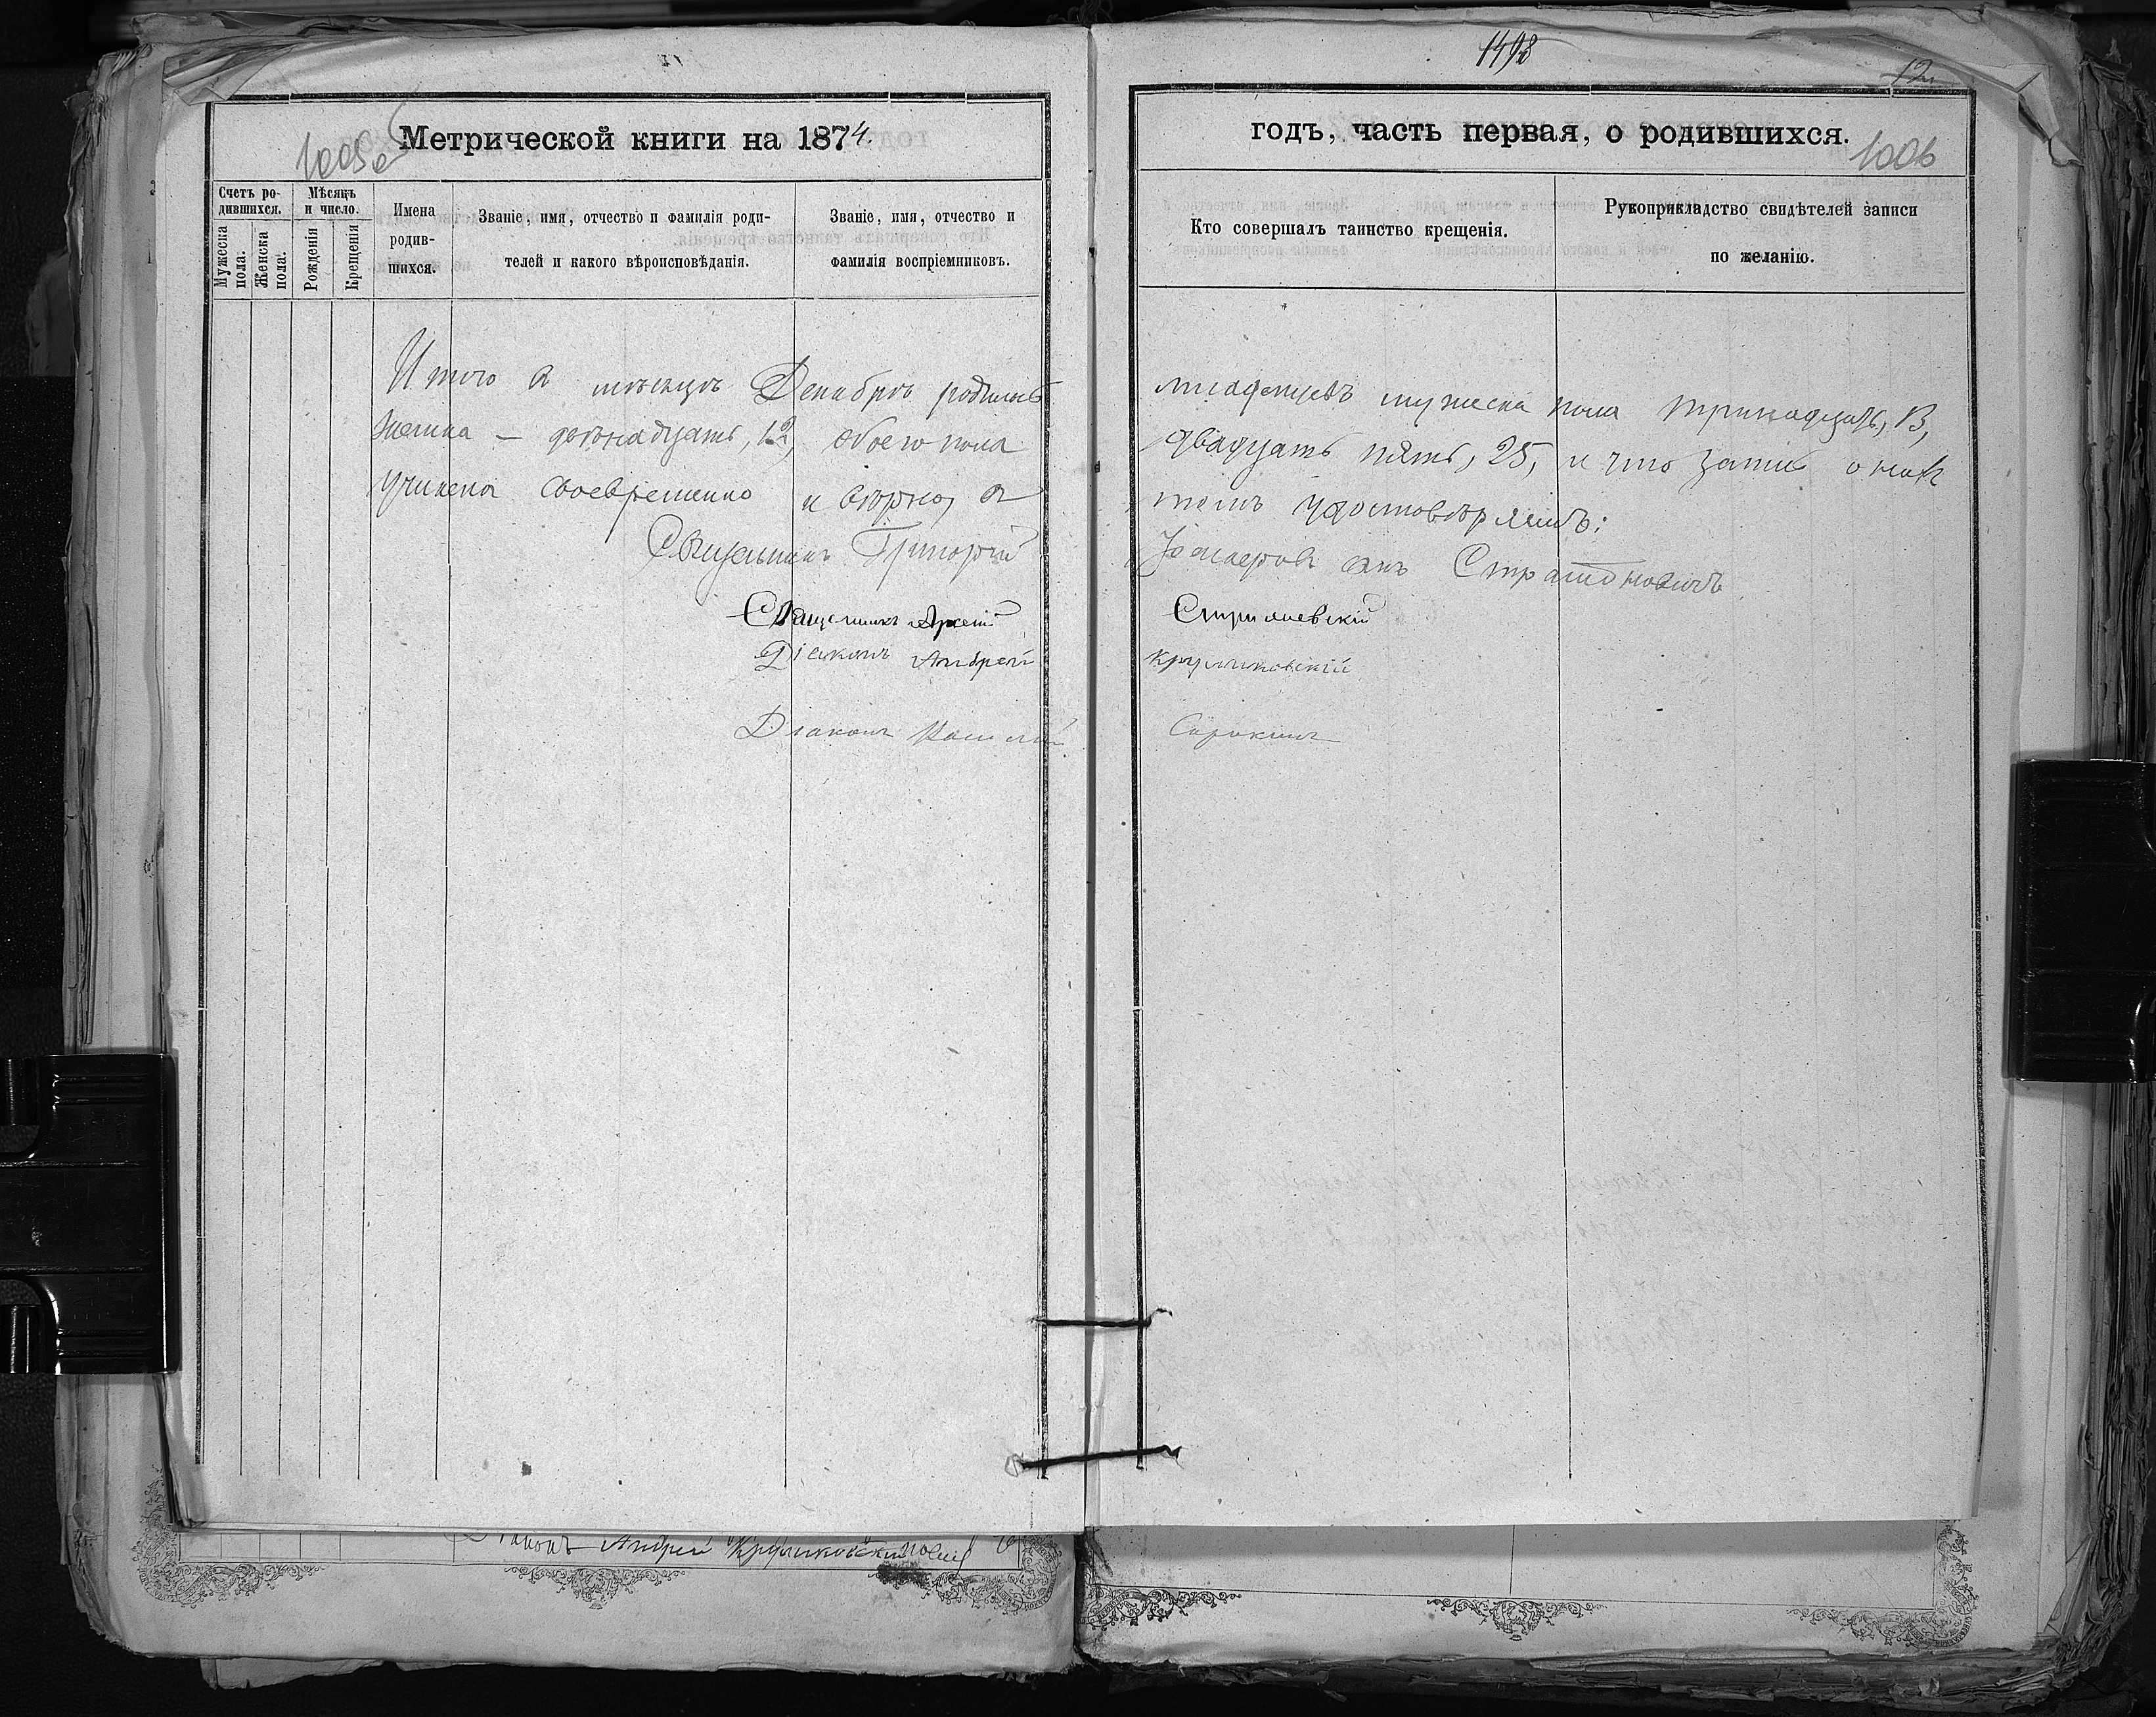 1498
12
1005
1006
Метрической книги на 1874.
годъ, часть первая, о родившихся.
Счетъ родившихся.
Мужеска пола.
Женска пола.
Мѣсяцъ и число.
Рожденія
Крещенія
Имена родив-
шихся.
Званіе, имя, отчество и фамилія роди-
телей и какого вѣроисповѣданія.
Званіе, имя, отчество и
фамилія воспріемниковъ.
Кто совершалъ таинство крещенія.
Рукоприкладство свидѣтелей записи
по желанію.
Итого въ мѣсяцѣ Декабрѣ родилось младенцевъ мужеска пола тринадцать, 13,
женска — двѣнадцать, 12, обоего пола двадцать пять, 25, и что запись о нихъ
учинена своевременно и вѣрно, въ томъ удостовѣряемъ:
Священникъ Григорій Стратоновичъ
Священникъ
Діаконъ Андрей Крушиковскій
Діаконъ Василій Сорокинъ
Діаконъ Андрей Крушиковскій